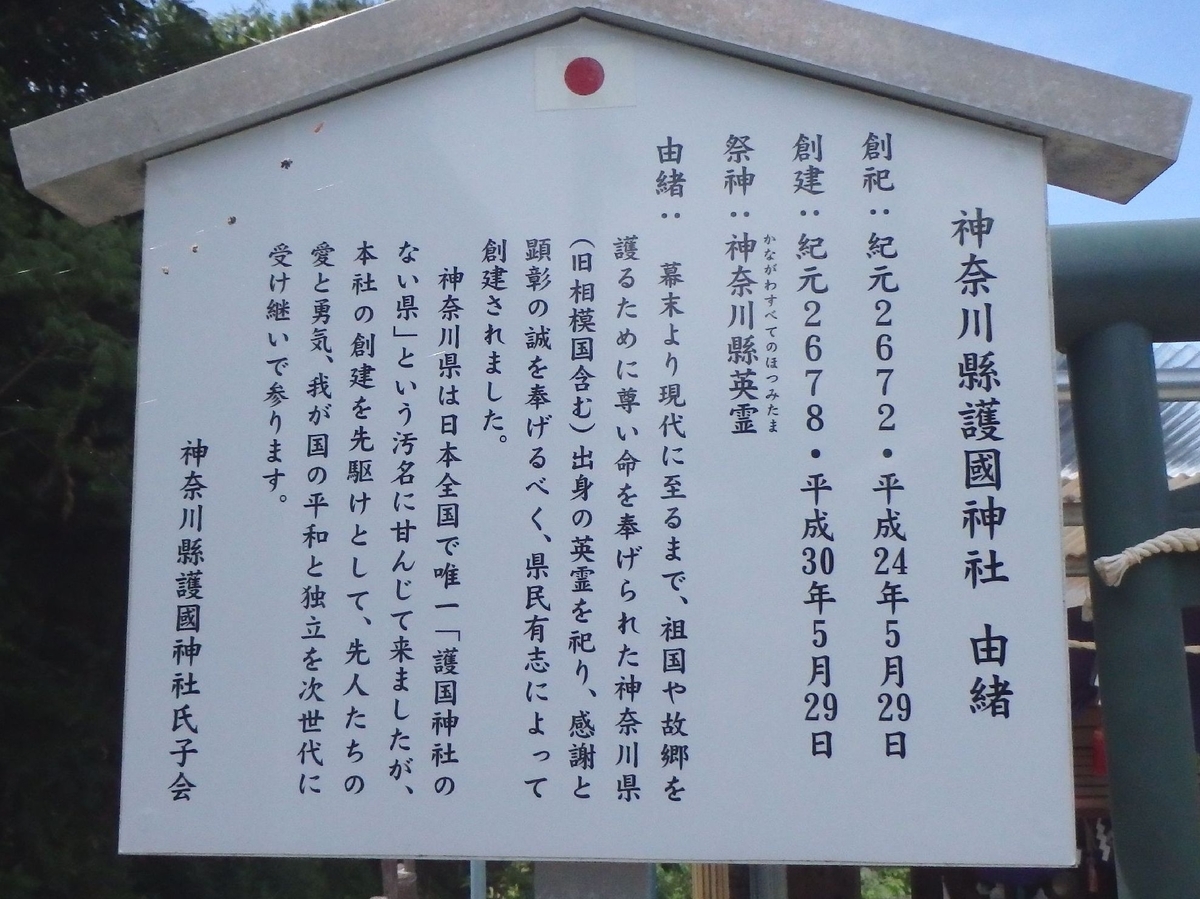 神奈川縣護國神社 由緒
創祀：紀元２６７２・平成24年５月29日
創建：紀元２６７８・平成30年５月29日
かながわすべてのほつみたま
祭神：神奈川縣英霊
由緒： 幕末より現代に至るまで、祖国や故郷を
護るために尊い命を奉げられた神奈川県
（旧相模国含む）出身の英霊を祀り、感謝と
顕彰の誠を奉げるべく、県民有志によって
創建されました。
神奈川県は日本全国で唯一「護国神社の
ない県」という汚名に甘んじて来ましたが、
本社の創建を先駆けとして、先人たちの
愛と勇気、我が国の平和と独立を次世代に
受け継いで参ります。
神奈川縣護國神社氏子会